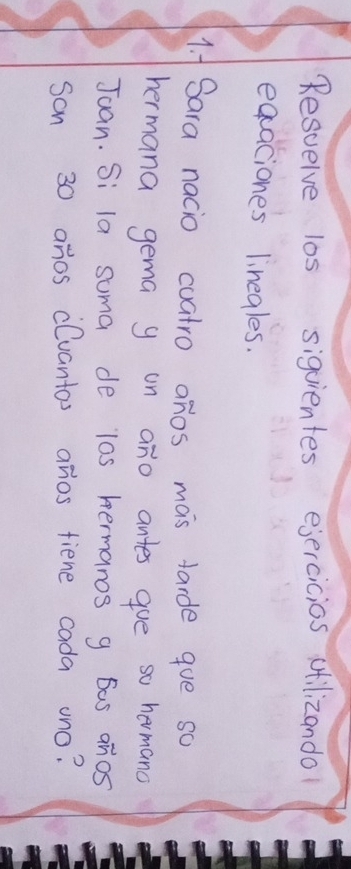 Resuelve los siguientes ejercicios utilizando
ecuaciones lineales.
1.- Sara nacio cuatro años más tarde que su
hermana gema y un año antes que su hermano
Juan. Si la suma de los hermanos y sus años
son 30 años ¿Cuantos años tiene cada uno?